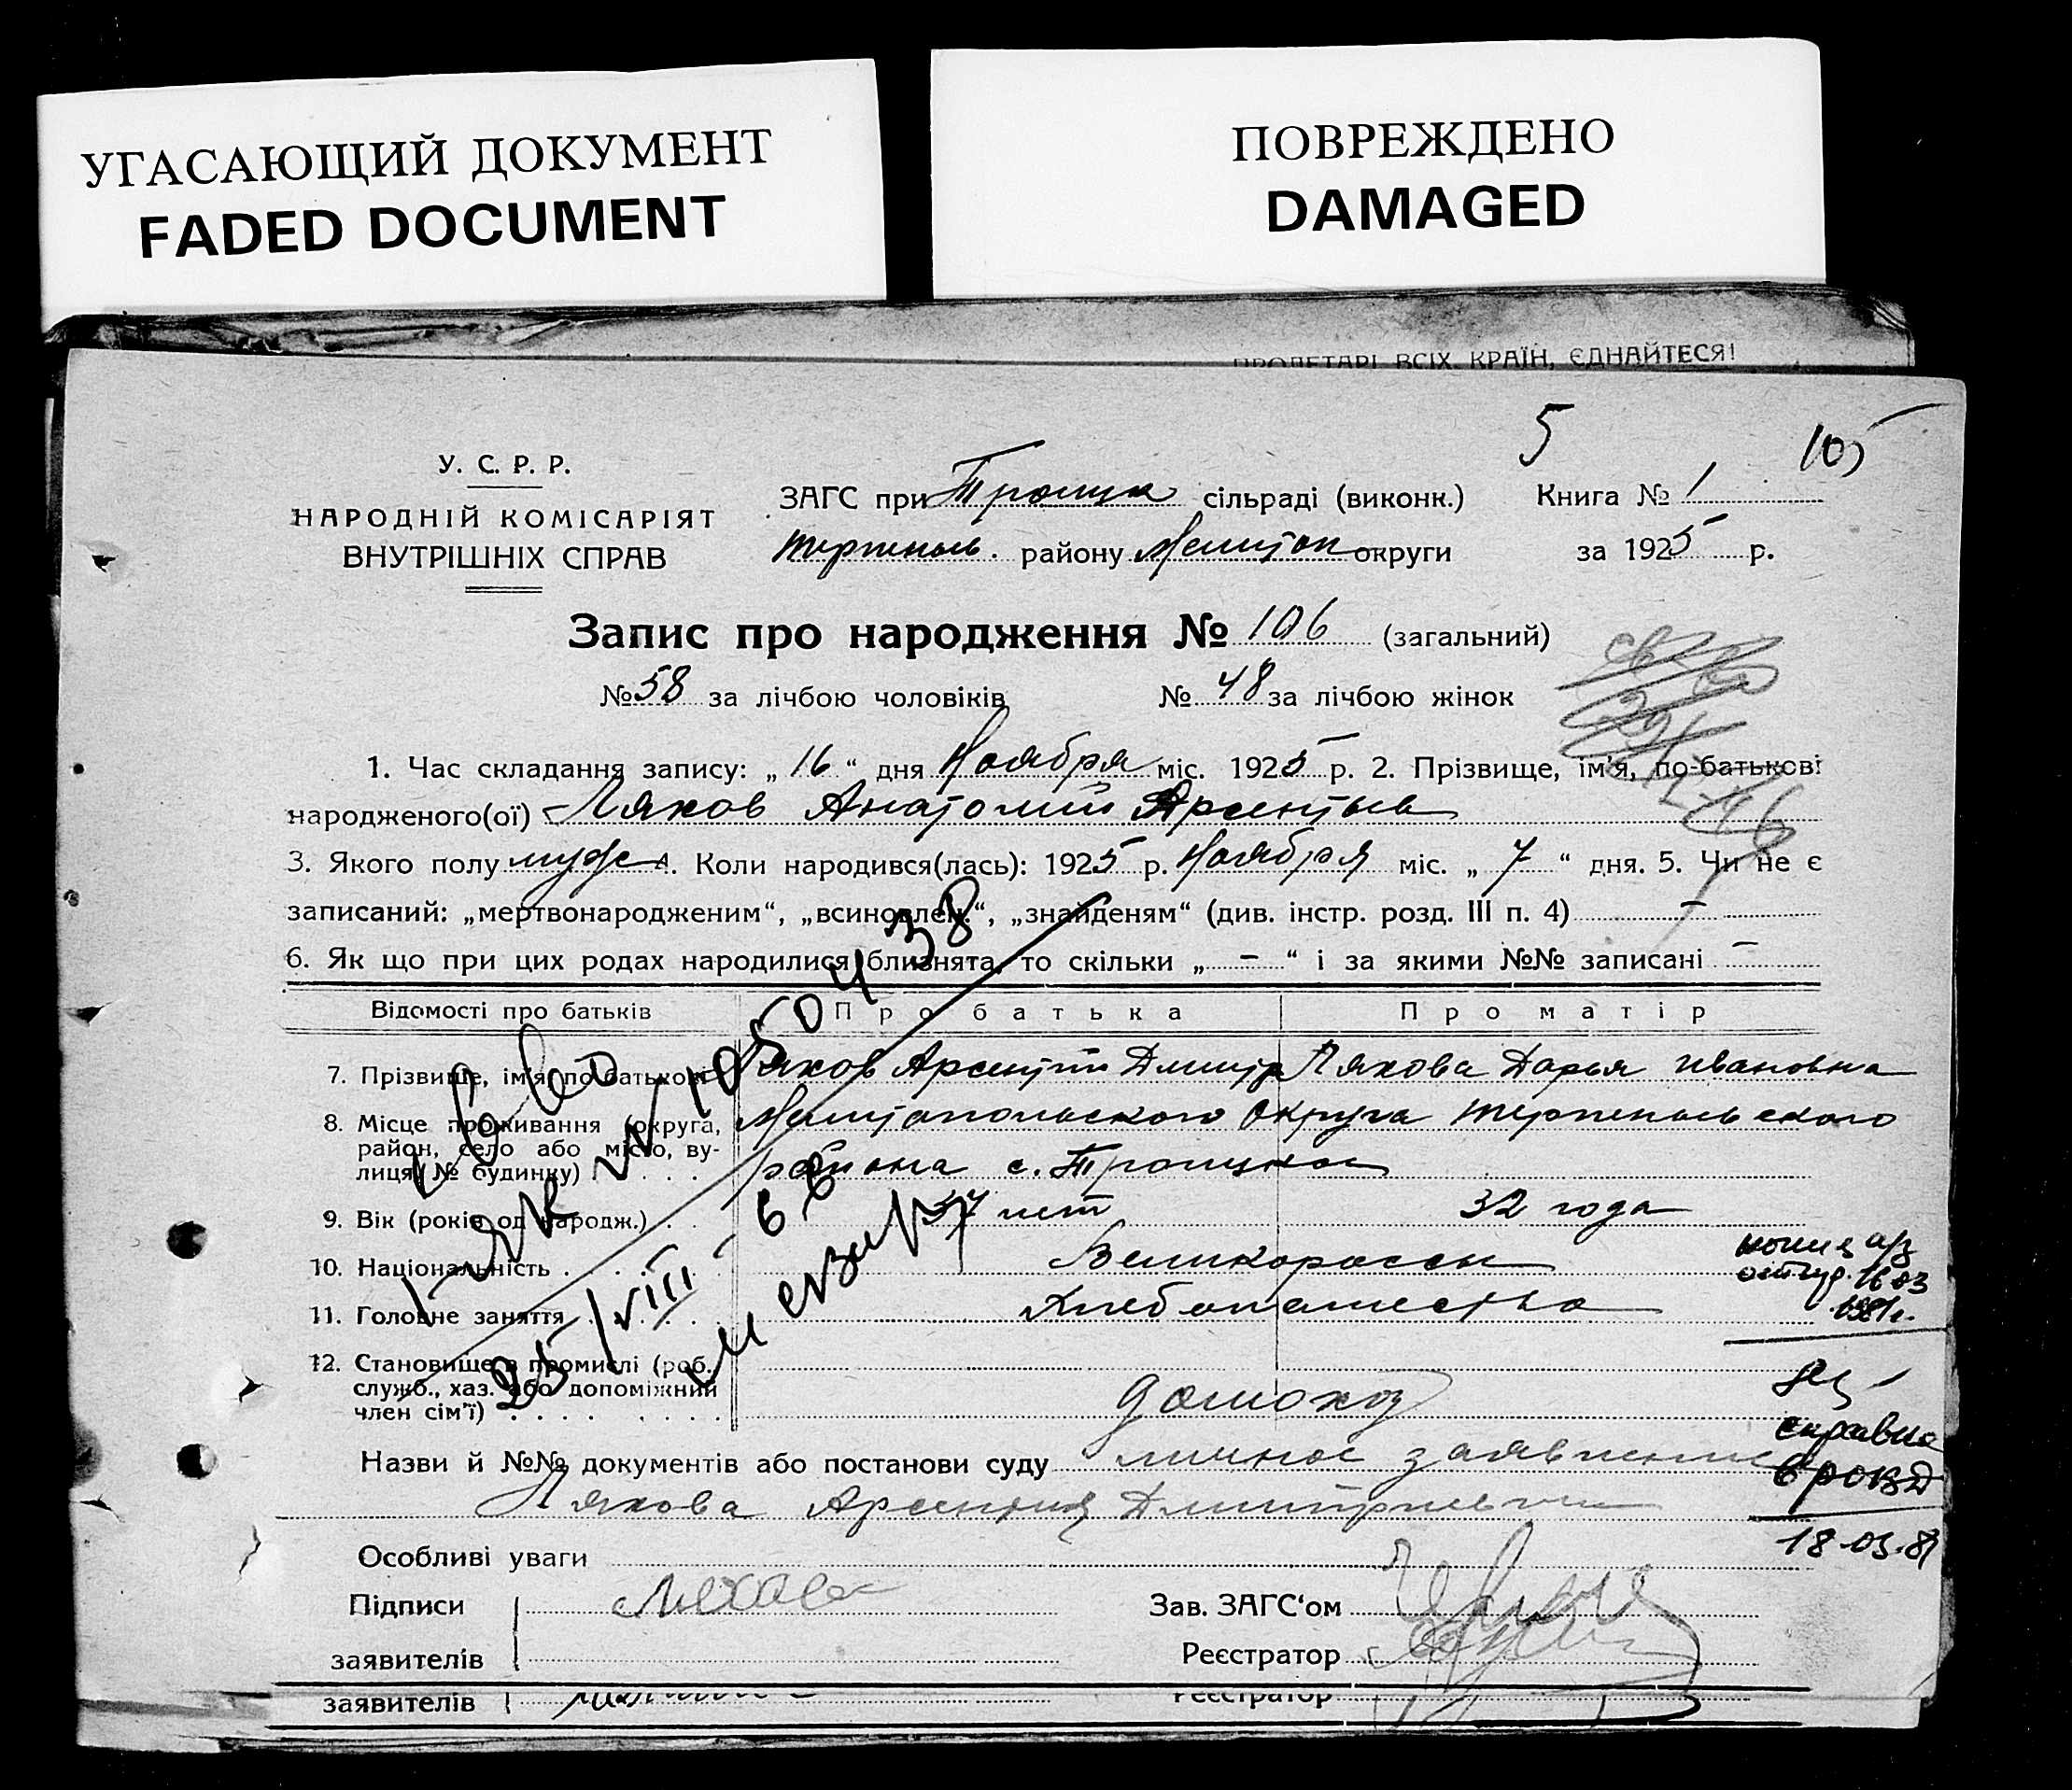 УГАСАЮЩИЙ ДОКУМЕНТ
FADED DOCUMENT
ПОВРЕЖДЕНО
DAMAGED
ПРОЛЕТАРІ ВСІХ КРАЇН, ЄДНАЙТЕСЯ!
5 105
У. С. Р. Р.
НАРОДНІЙ КОМІСАРІЯТ
ВНУТРІШНІХ СПРАВ
ЗАГС при Троицк сільраді (виконк.) Книга № 1
Терпеньев. району Мелитоп округи за 1925 р.
Запис про народження № 106 (загальний)
№ 58 за лічбою чоловіків № 48 за лічбою жінок
1. Час складання запису: „ 16 “ дня Ноября міс. 1925 р. 2. Прізвище, ім'я, по-батькові
народженого(ої) Ляхов Анатолий Арентьев
3. Якого полу муж 4. Коли народився(лась): 1925 р. Ноября міс. „ 7 “ дня. 5. Чи не є
записаний: „мертвонародженим“, „всиновлен.“, „знайденям“ (див. інстр. розд. III п. 4) —
6. Як що при цих родах народилися близнята, то скільки „ — “ і за якими №№ записані —
Відомості про батьків Про батька Про матір
7. Прізвище, ім'я, по батькові Ляхов Арсентий Дмитр Ляхова Дарья Ивановна
8. Місце проживання (округа, район, село або місто, вулиця, № будинку) Мелитопольского Округа Терпеньевского
района с. Троицкое
9. Вік (років од народж.) 37 лет 32 года
10. Національність Великороссы
11. Головне заняття Хлебопашество
12. Становище в промислі (роб., служб., хаз. або допоміжний член сім'ї)
домохоз
Назви й №№ документів або постанови суду личное заявление
Ляхова Арсентия Дмитриевича
Особливі уваги
Підписи Ляхов
заявителів
Зав. ЗАГС'ом
Реєстратор
заявителів
Реєстратор
1050438
25/VIII - 66
копия а/з
16 03
1981г.
справка
18-03-81